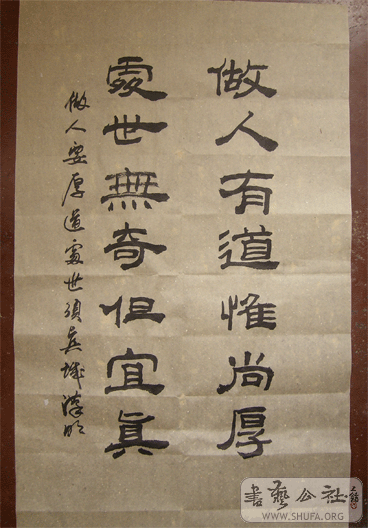 做人有道惟尚厚
處世無奇但宜眞
做人要厚道處世須真誠
書藝公社
WWW.SHUFA.ORG